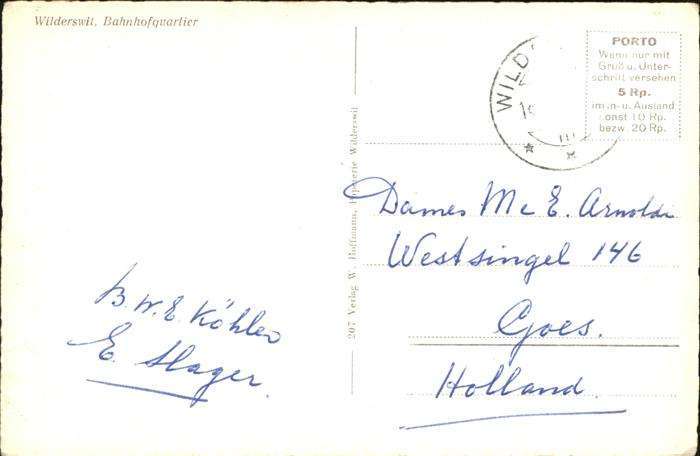 Wilderswil, Bahnhofquartier
WILD
PORTO
Wenn nur mit
Gruß u. Unter-
schrift versehen
5 Rp.
im In- u. Ausland
sonst 10 Rp.
bezw. 20 Rp.
207 Verlag W. Hoffmann, Papeterie Wilderswil
Dames Mc E. Arnoldi
Westsingel 146
Goes.
Holland.
B W. E. Köhler
E. Slager.